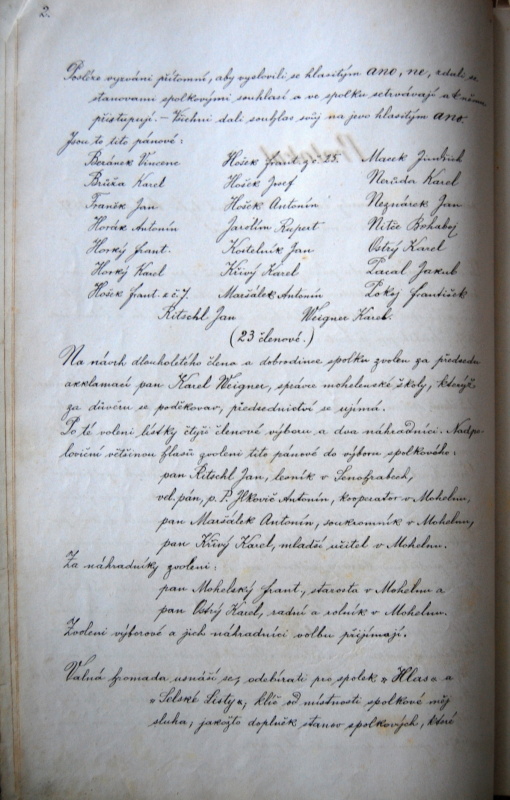 2.
Posléze vyzváni přítomní, aby vyslovili se hlasitým ano, ne, zdali se
stanovami spolkovými souhlasí a ve spolku setrvávají a k němu
přistupují. – Všichni dali souhlas svůj na jevo hlasitým ano.
Jsou to tito pánové:
Beránek Vincenc Hošek frant. z č. 25. Macek Jindřich
Brůža Karel Hošek Josef Neruda Karel
Franěk Jan Hošek Antonín Neznárek Jan
Horák Antonín Jarolím Rupert Nitče Bohaboj
Horký frant. Kostelník Jan Ostrý Karel
Horký Karel Křivý Karel Pacal Jakub
Hošek frant. z č. 7. Maršálek Antonín Pokej František
Ritschl Jan Weigner Karel.
(23 členové.)
Na návrh dlouholitého člena a dobrodince spolku zvolen za předsedu
akklamací pan Karel Weigner, správce mohelenské školy, kterýž
za důvěru se poděkovav, předsednictví se ujímá.
Po té voleni lístky čtyři členové výboru a dva náhradníci. Nadpo-
loviční většinou hlasů zvoleni tito pánové do výboru spolkového:
pan Ritschl Jan, lesník v Senohradech,
vel. pán, p. P. Ilkovič Antonín, kooperator v Mohelnu,
pan Maršálek Antonín, soukromník v Mohelnu,
pan Křivý Karel, mladší učitel v Mohelnu.
Za náhradníky zvoleni:
pan Mohelský frant., starosta v Mohelnu a
pan Ostrý Karel, radní a rolník v Mohelnu.
Zvolení výborové a jich náhradníci volbu přijímají.
Valná hromada usnáší se: odebírati pro spolek „Hlas“ a
„Selské Listy“; klíč od místnosti spolkové měj
sluha; jakožto doplněk stanov spolkových, které